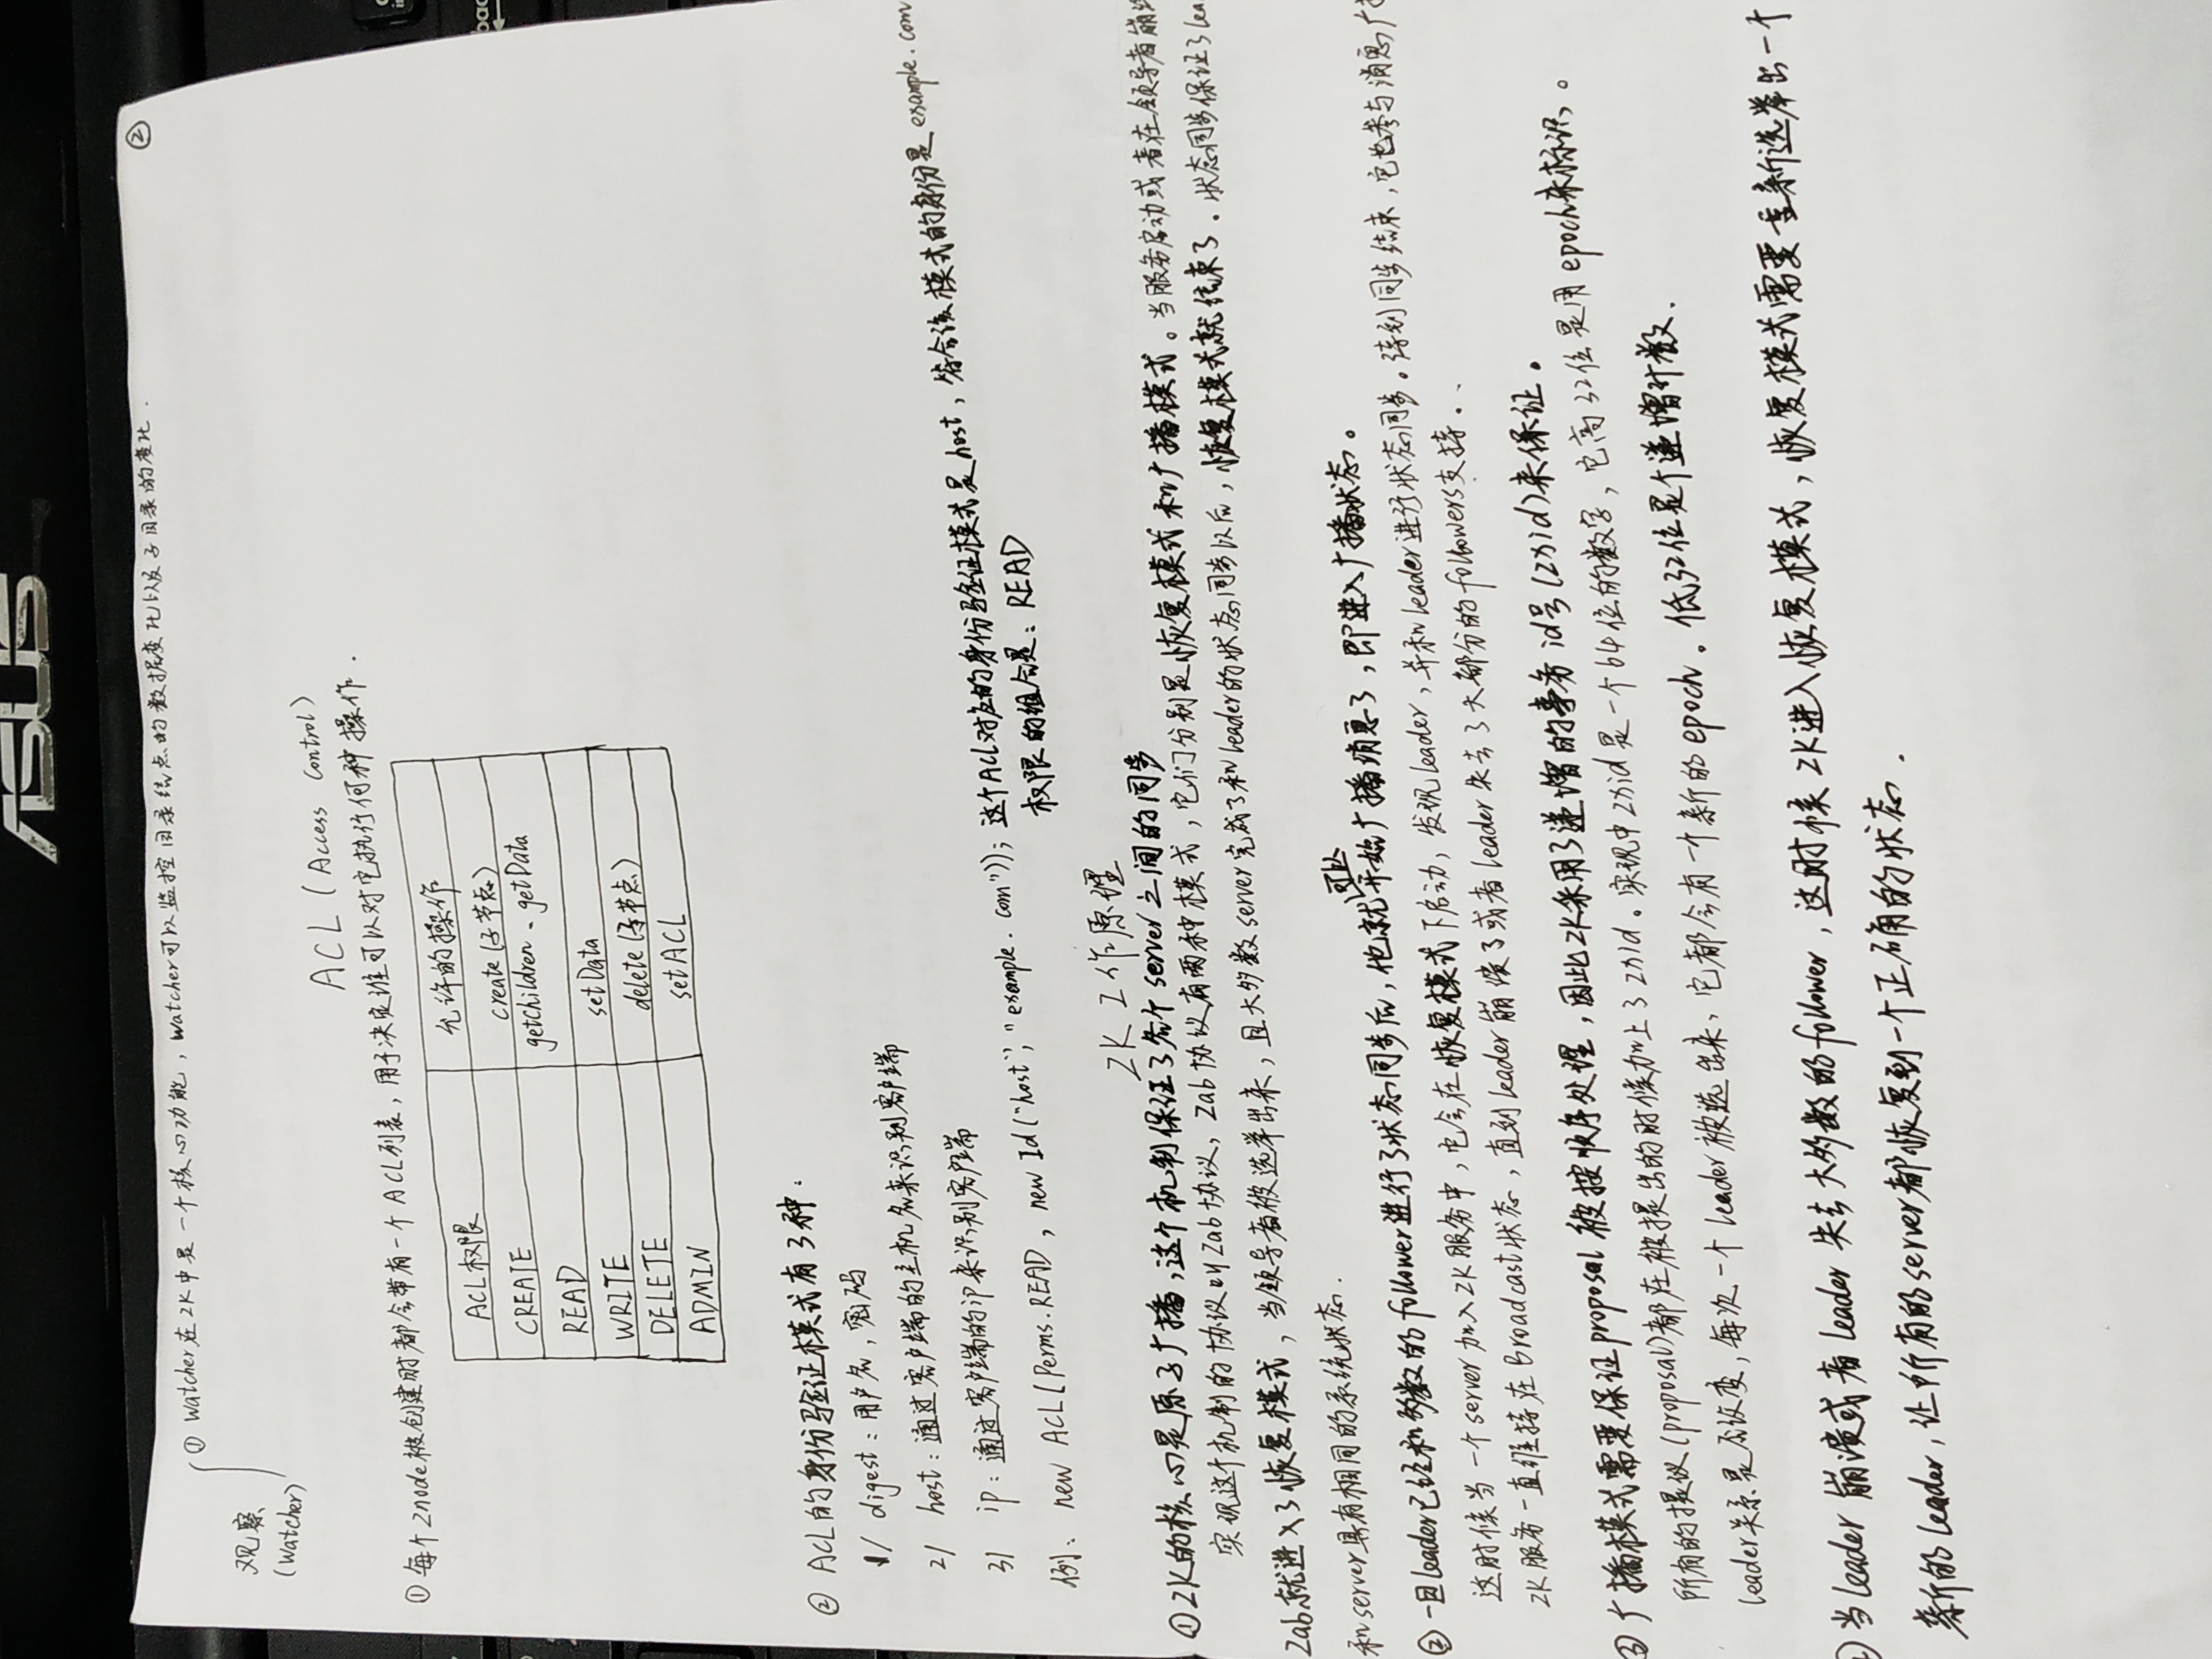 ASUS
②
① watcher在ZK中是一个核心功能，watcher可以监控目录结点的数据变化以及子目录的变化．
观察
(watcher)
ACL (Access Control)
① 每个Znode被创建时都会带有一个ACL列表，用于决定谁可以对它执行何种操作．
ACL权限 允许的操作
CREATE create(子节点)
READ getchildren、getData
WRITE setData
DELETE delete(子节点)
ADMIN setACL
② ACL的身份验证模式有3种：
1/ digest：用户名，密码
2/ host：通过客户端的主机名来识别客户端
3/ ip：通过客户端的ip来识别客户端
例： new ACL(Perms.READ, new Id("host", "example.com")); 这个ACL对应的身份验证模式是host，符合该模式的身份是example.com
权限的组合是：READ
ZK工作原理
① ZK的核心是原子广播，这个机制保证了各个server之间的同步
实现这个机制的协议叫Zab协议，Zab协议有两种模式，它们分别是恢复模式和广播模式。当服务启动或者在领导者崩
Zab就进入了恢复模式，当领导者被选举出来，且大多数server完成了和leader的状态同步以后，恢复模式就结束了．状态同步保证了lea
和server具有相同的系统状态．
② 一旦leader已经和多数的follower进行了状态同步后，他就可以开始广播消息了，即进入广播状态。
这时候当一个server加入ZK服务中，它会在恢复模式下启动，发现leader，并和leader进行状态同步。待到同步结束，它也参与消息广
ZK服务一直维持在Broadcast状态，直到leader崩溃了或者leader失去了大部分的followers支持．
③ 广播模式需要保证proposal被按顺序处理，因此ZK采用了递增的事务id号(Zxid)来保证。
所有的提议(proposal)都在被提出的时候加上了Zxid。实现中Zxid是一个64位的数字，它高32位是用epoch来标识。
leader关系是否改变，每次一个leader被选出来，它都会有一个新的epoch。低32位是个递增计数．
当leader崩溃或者leader失去大多数的follower，这时候ZK进入恢复模式，恢复模式需要重新选举出一个
新的leader，让所有的server都恢复到一个正确的状态．